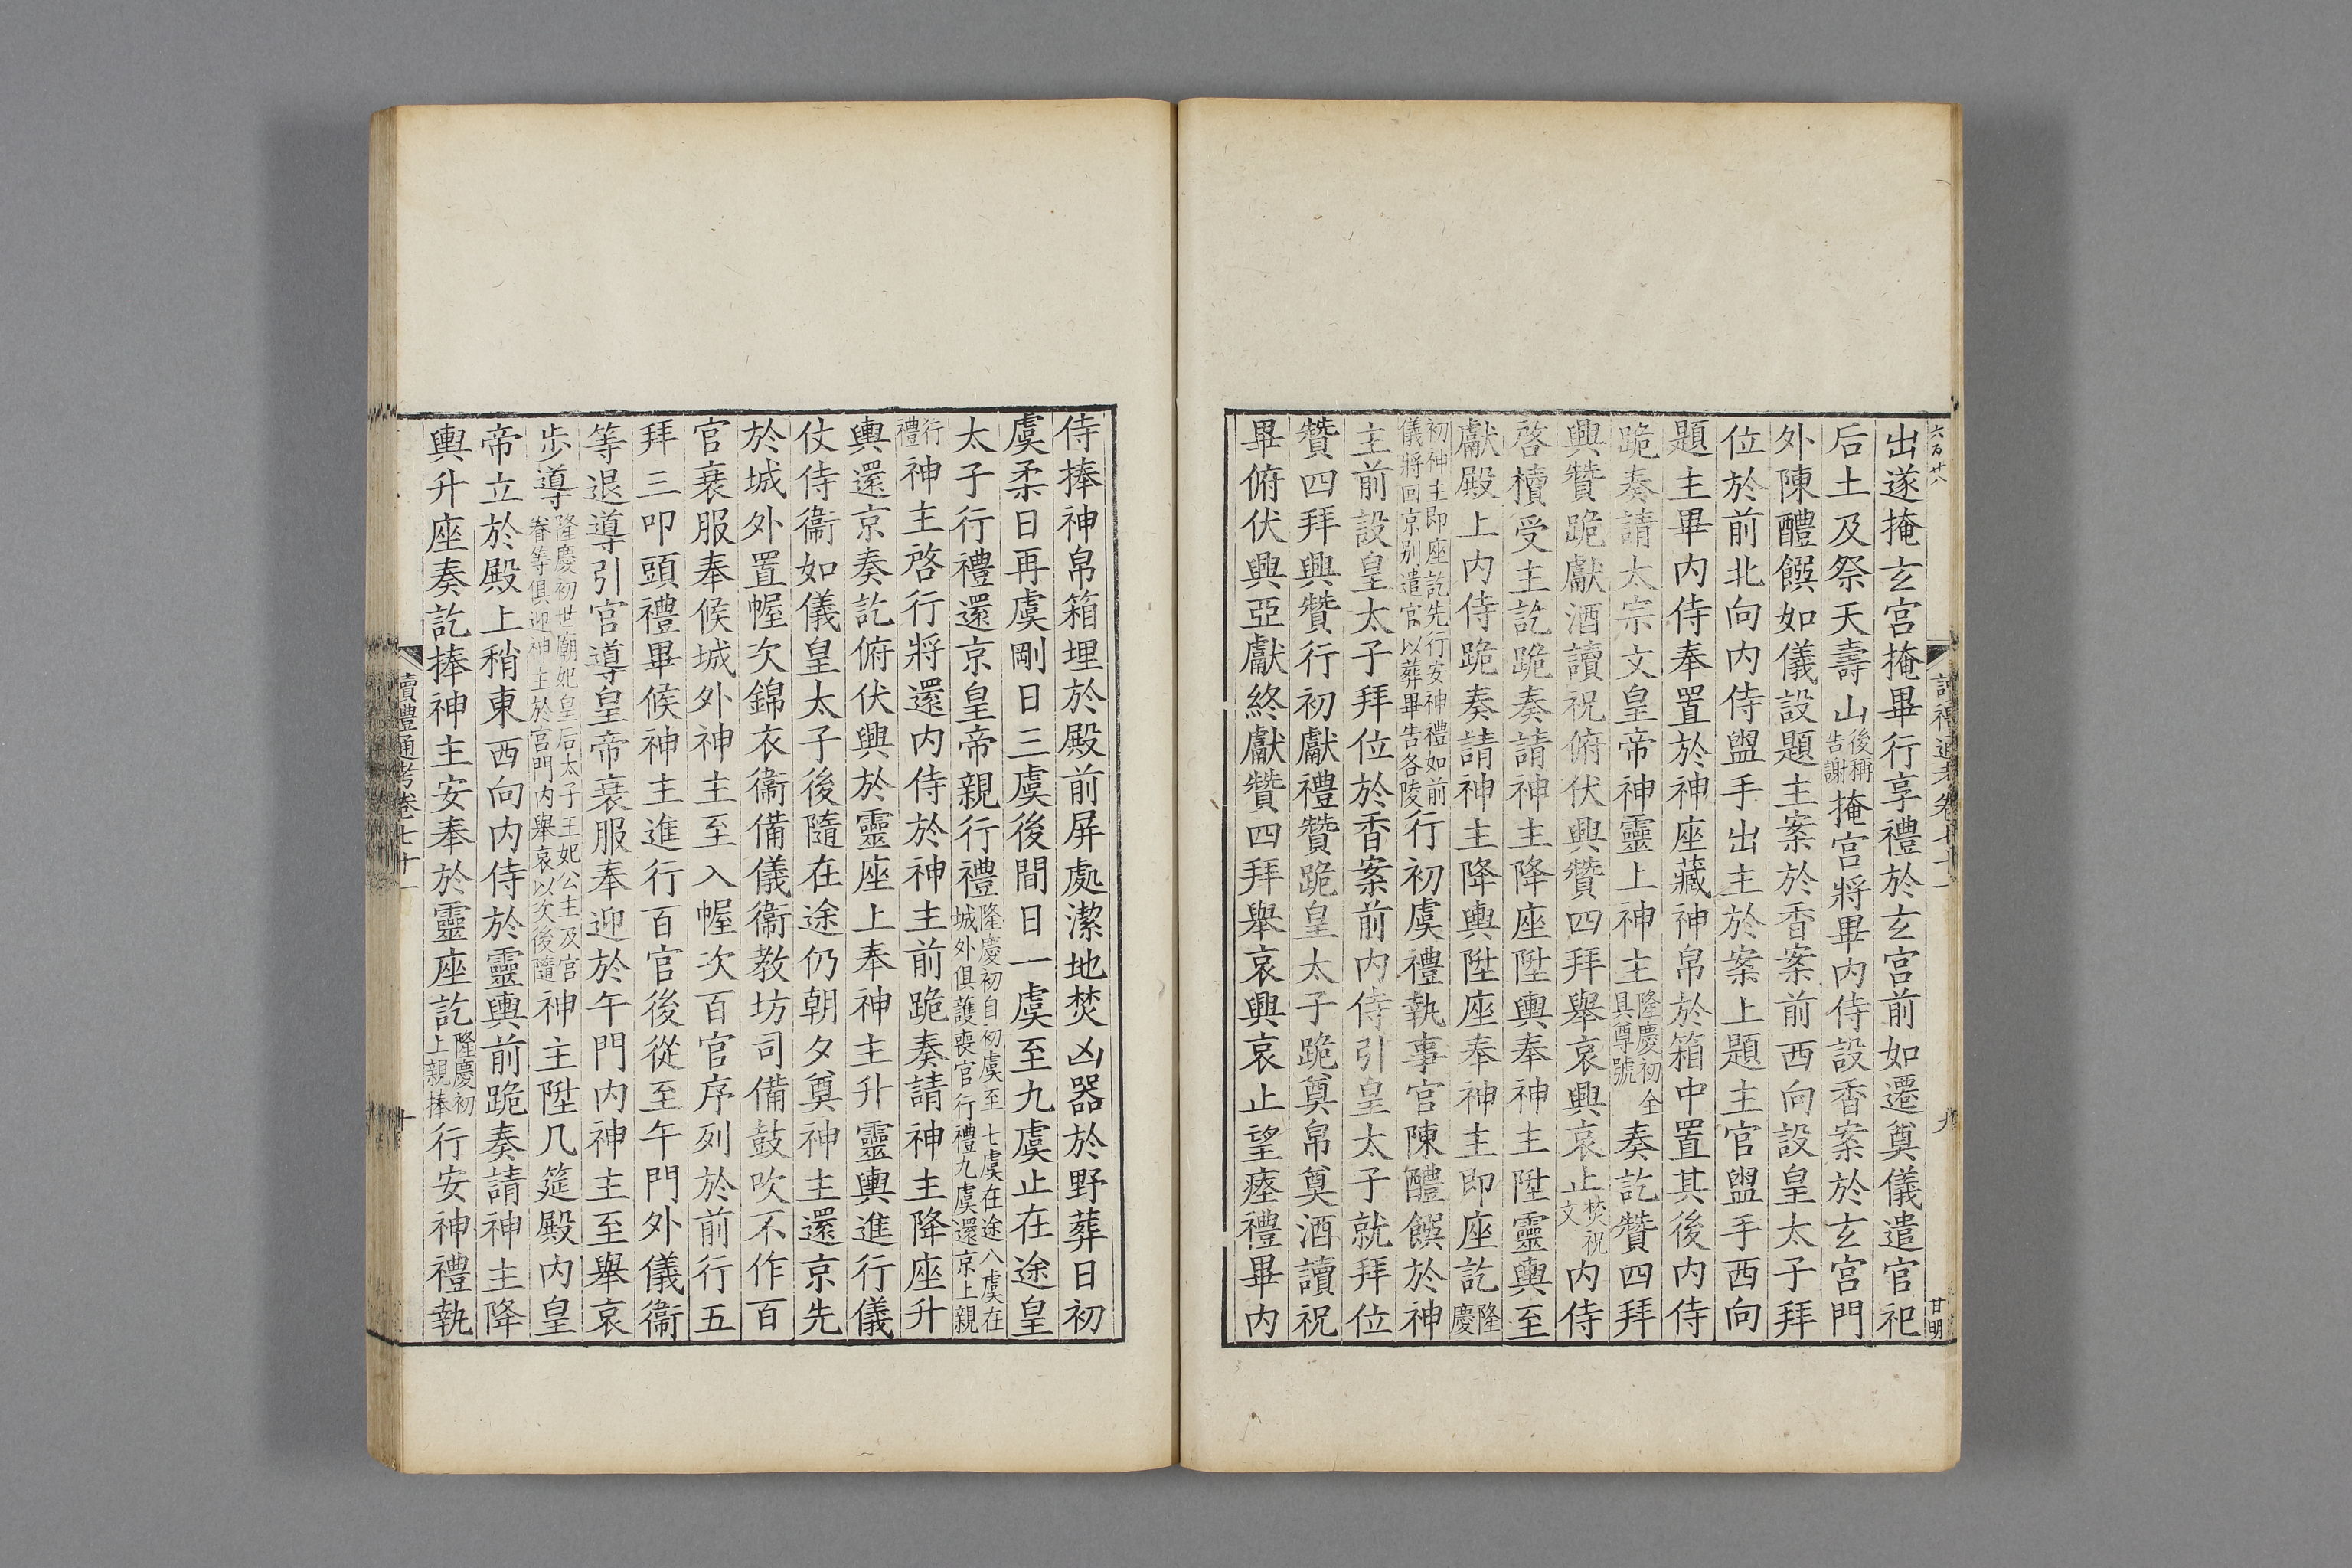 六百廿八
出遂掩玄宮掩畢行享禮於玄宮前如遷奠儀遣官祀
后土及祭天壽山後稱告謝掩宮將畢内侍設香案於玄宮門
外陳醴饌如儀設題主案於香案前西向設皇太子拜
位於前北向内侍盥手出主於案上題主官盥手西向
題主畢内侍奉置於神座藏神帛於箱中置其後内侍
跪奏請太宗文皇帝神靈上神主隆慶初全具尊號奏訖贊四拜
興贊跪獻酒讀祝俯伏興贊四拜舉哀興哀止焚祝文内侍
啓櫝受主訖跪奏請神主降座陞輿奉神主陞靈輿至
獻殿上内侍跪奏請神主降輿陞座奉神主即座訖隆慶
初伸主即座訖先行安神禮如前儀將回京别遣官以葬畢告各陵行初虞禮執事官陳醴饌於神
主前設皇太子拜位於香案前内侍引皇太子就拜位
贊四拜興贊行初獻禮贊跪皇太子跪奠帛奠酒讀祝
畢俯伏興亞獻終獻贊四拜舉哀興哀止望瘞禮畢内
讀禮通考卷七十一
九
甘明
侍捧神帛箱埋於殿前屏處潔地焚凶器於野葬日初
虞柔日再虞剛日三虞後間日一虞至九虞止在途皇
太子行禮還京皇帝親行禮隆慶初自初虞至七虞在途八虞在城外俱護喪官行禮九虞還京上親
行禮神主啓行將還内侍於神主前跪奏請神主降座升
輿還京奏訖俯伏興於靈座上奉神主升靈輿進行儀
仗侍衞如儀皇太子後隨在途仍朝夕奠神主還京先
於城外置幄次錦衣衞備儀衞教坊司備鼓吹不作百
官衰服奉候城外神主至入幄次百官序列於前行五
拜三叩頭禮畢候神主進行百官後從至午門外儀衞
等退導引官導皇帝衰服奉迎於午門内神主至舉哀
步導隆慶初世廟妃皇后太子王妃公主及宮眷等俱迎神主於宮門内舉哀以次後隨神主陞几筵殿内皇
帝立於殿上稍東西向内侍於靈輿前跪奏請神主降
輿升座奏訖捧神主安奉於靈座訖隆慶初上親捧行安神禮執
讀禮通考卷七十一
十